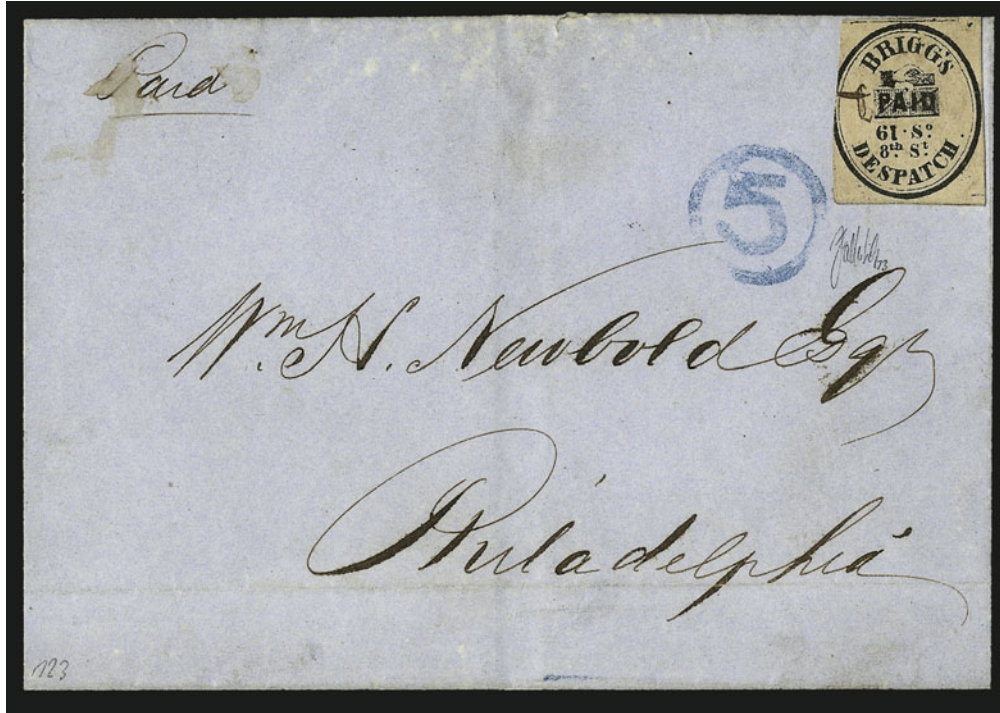 Paid
BRIGG'S
PAID
61 · Sº
8th. St.
DESPATCH.
5
Wm. H. Newbold Esqr
Philadelphia
123